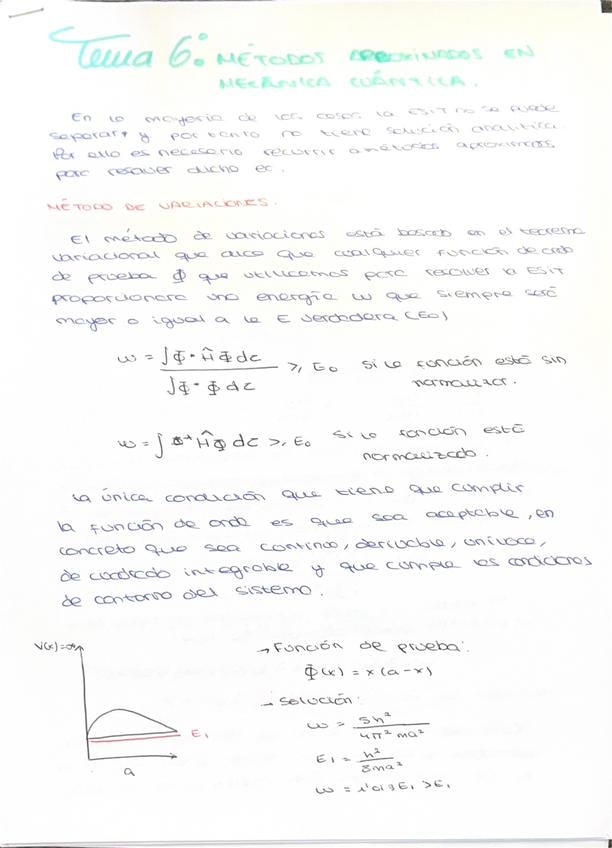 Tema 6: MÉTODOS APROXIMADOS EN
MECÁNICA CUÁNTICA.
En la mayoría de los casos la ESIT no se puede
separar, y por tanto no tiene solución analítica.
Por ello es necesario recurrir a métodos aproximados
para resolver dicha ec.
MÉTODO DE VARIACIONES.
El método de variaciones está basado en el teorema
variacional que dice que cualquier función de onda
de prueba Φ que utilicemos para resolver la ESIT
proporcionará una energía w que siempre será
mayor o igual a la E verdadera (E₀)
w = ∫Φ* Ĥ Φ dτ / ∫Φ* Φ dτ ≥ E₀ si la función está sin
normalizar.
w = ∫Φ* Ĥ Φ dτ ≥ E₀ si la función está
normalizada.
La única condición que tiene que cumplir
la función de onda es que sea aceptable, en
concreto que sea continua, derivable, unívoca,
de cuadrado integrable y que cumpla las condiciones
de contorno del sistema.
V(x)=∞
E₁
a
→ Función de prueba:
Φ(x) = x(a-x)
→ Solución:
w = 5h² / 4π² ma²
E₁ = h² / 8ma²
w = 1'013 E₁ > E₁